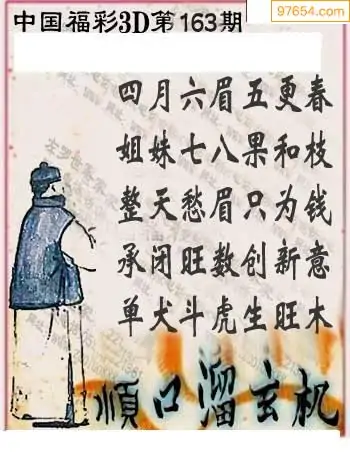 97654.com
中国福彩3D第163期
四月六眉五更春
姐妹七八果和枝
整天愁眉只为钱
承闭旺数创新意
单犬斗虎生旺木
順口溜玄机